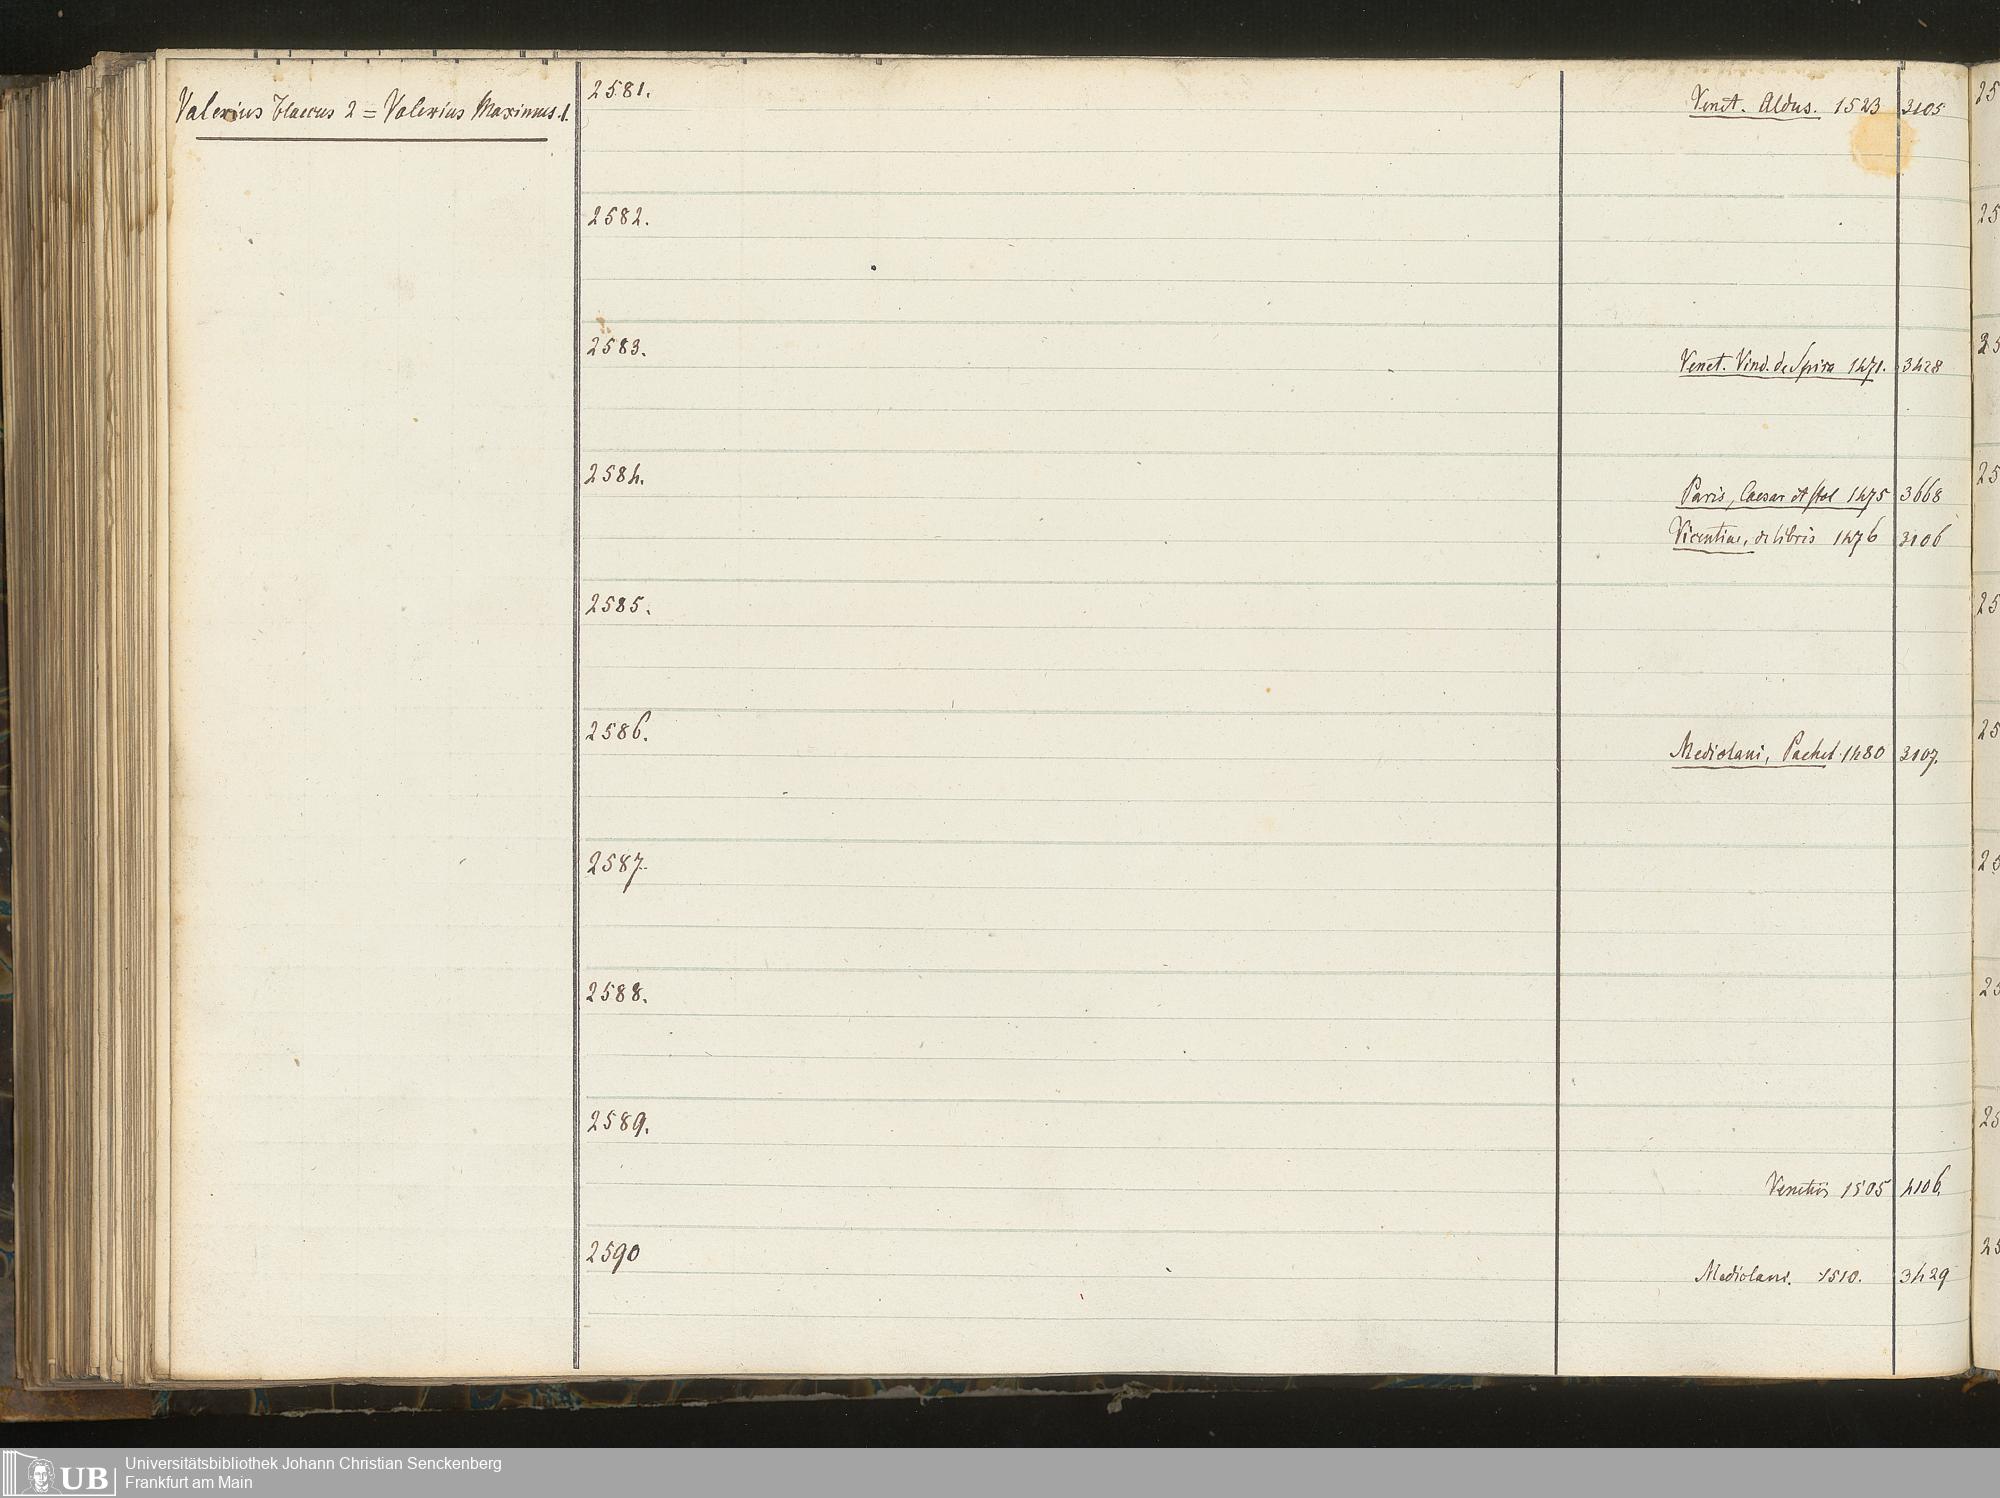 Valerius Flaccus 2 = Valerius Maximus. 1.
2581.
Venet. Aldus. 1523 3105
2582.
2583.
Venet. Vind. de Spira 1471. 3428
2584.
Paris, Caesar et Stol 1475 3668
Vicentiae, de libris 1476 3106
2585.
2586.
Mediolani, Pachel 1480 3107.
2587.
2588.
2589.
Venetiis 1505 4106.
2590
Mediolani. 1510. 3429
25
25
25
25
25
25
25
25
25
25
UB
Universitätsbibliothek Johann Christian Senckenberg
Frankfurt am Main